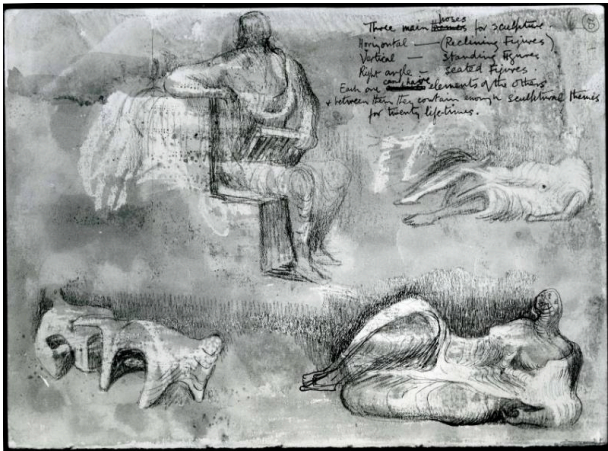 poses
Three main themes for sculpture.
Horizontal — (Reclining Figures)
Vertical — Standing figures
Right angle — Seated Figures.
can have
Each one elements of the others
+ between them they contain enough sculptural themes
for twenty lifetimes.